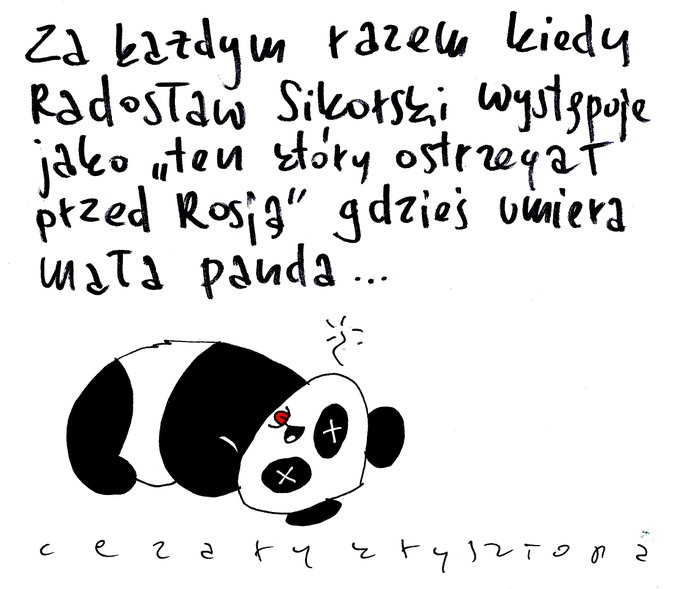 Za każdym razem kiedy
Radosław Sikorski występuje
jako „ten który ostrzegał
przed Rosją” gdzieś umiera
mała panda...
cezary krysztopa